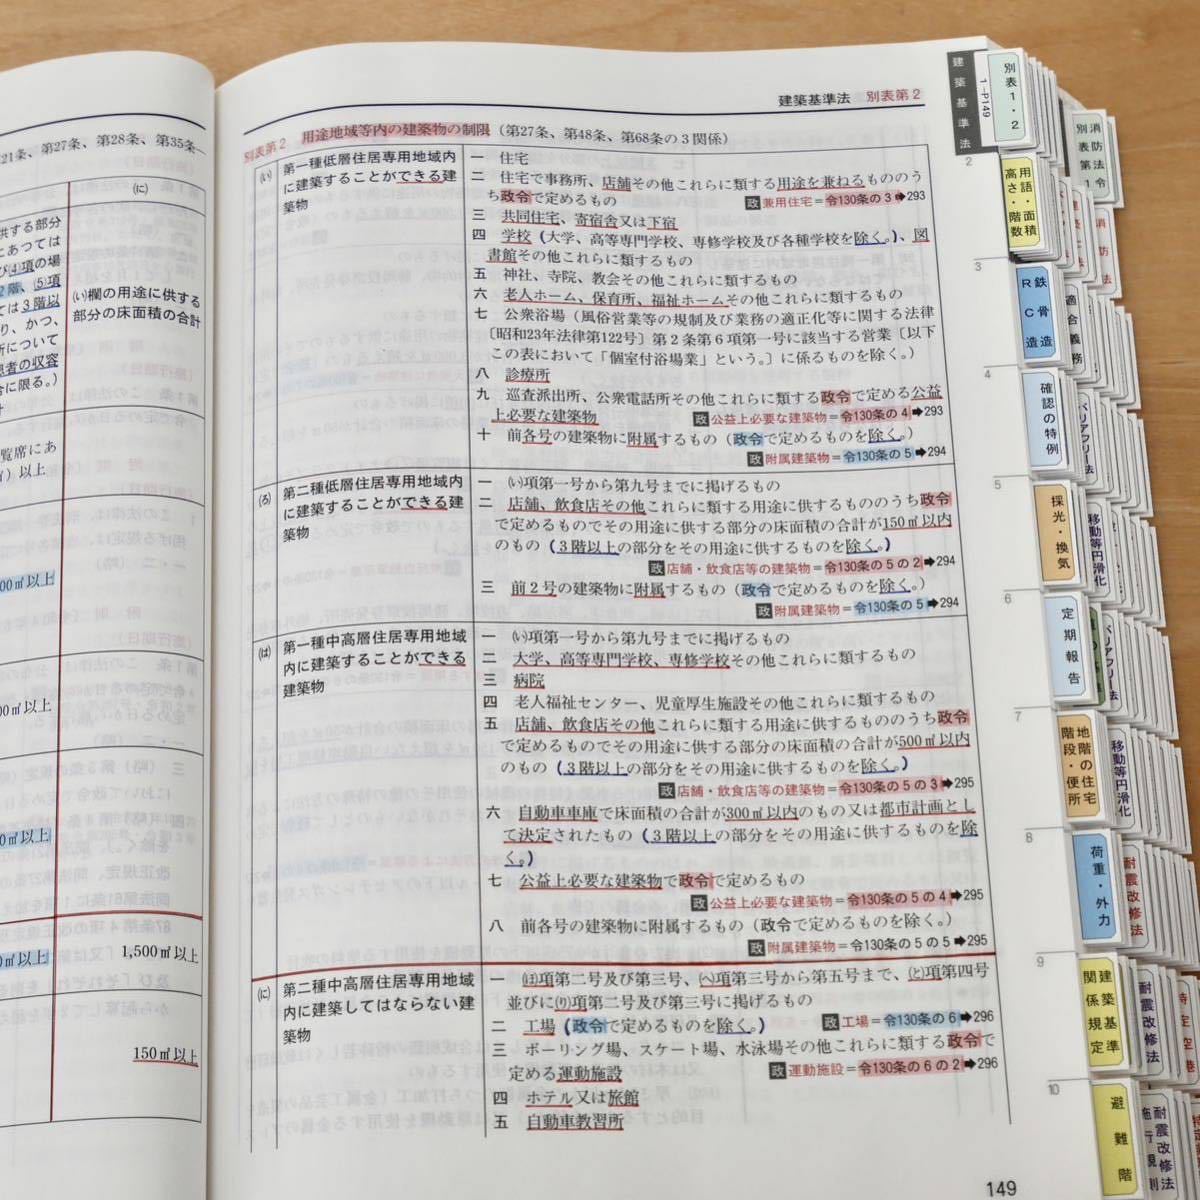 21条、第27条、第28条、第35条
㈡
供する部分
とあつては
び⑷項の場
2階、⑸項
ては3階以
り、かつ、
所について
患者の収容
合に限る。)
㈠欄の用途に供する
部分の床面積の合計
覧席にあ
以上
00㎡以上
00㎡以上
0㎡以上
0㎡以上
1,500㎡以上
150㎡以上
建築基準法 別表第2
別表第2 用途地域等内の建築物の制限(第27条、第48条、第68条の3関係)
(い) 第一種低層住居専用地域内
に建築することができる建
築物
一 住宅
二 住宅で事務所、店舗その他これらに類する用途を兼ねるもののう
ち政令で定めるもの 政兼用住宅=令130条の3➡293
三 共同住宅、寄宿舎又は下宿
四 学校(大学、高等専門学校、専修学校及び各種学校を除く。)、図
書館その他これらに類するもの
五 神社、寺院、教会その他これらに類するもの
六 老人ホーム、保育所、福祉ホームその他これらに類するもの
七 公衆浴場(風俗営業等の規制及び業務の適正化等に関する法律
〔昭和23年法律第122号〕第2条第6項第一号に該当する営業〔以下
この表において「個室付浴場業」という。〕に係るものを除く。)
八 診療所
九 巡査派出所、公衆電話所その他これらに類する政令で定める公益
上必要な建築物 政公益上必要な建築物=令130条の4➡293
十 前各号の建築物に附属するもの(政令で定めるものを除く。)
政附属建築物=令130条の5➡294
(ろ) 第二種低層住居専用地域内
に建築することができる建
築物
一 (い)項第一号から第九号までに掲げるもの
二 店舗、飲食店その他これらに類する用途に供するもののうち政令
で定めるものでその用途に供する部分の床面積の合計が150㎡以内
のもの(3階以上の部分をその用途に供するものを除く。)
政店舗・飲食店等の建築物=令130条の5の2➡294
三 前2号の建築物に附属するもの(政令で定めるものを除く。)
政附属建築物=令130条の5➡294
(は) 第一種中高層住居専用地域
内に建築することができる
建築物
一 (い)項第一号から第九号までに掲げるもの
二 大学、高等専門学校、専修学校その他これらに類するもの
三 病院
四 老人福祉センター、児童厚生施設その他これらに類するもの
五 店舗、飲食店その他これらに類する用途に供するもののうち政令
で定めるものでその用途に供する部分の床面積の合計が500㎡以内
のもの(3階以上の部分をその用途に供するものを除く。)
政店舗・飲食店等の建築物=令130条の5の3➡295
六 自動車車庫で床面積の合計が300㎡以内のもの又は都市計画とし
て決定されたもの(3階以上の部分をその用途に供するものを除
く。)
七 公益上必要な建築物で政令で定めるもの
政公益上必要な建築物=令130条の5の4➡295
八 前各号の建築物に附属するもの(政令で定めるものを除く。)
政附属建築物=令130条の5の5➡295
(に) 第二種中高層住居専用地域
内に建築してはならない建
築物
一 (ほ)項第二号及び第三号、(へ)項第三号から第五号まで、(と)項第四号
並びに(り)項第二号及び第三号に掲げるもの
二 工場(政令で定めるものを除く。) 政工場=令130条の6➡296
三 ボーリング場、スケート場、水泳場その他これらに類する政令で
定める運動施設 政運動施設=令130条の6の2➡296
四 ホテル又は旅館
五 自動車教習所
149
建築基準法
1-P149
別表1・2
2
用語・面積
高さ・階数
3
鉄骨造
RC造
4
確認の特例
5
採光・換気
6
定期報告
7
地階の住宅
階段・便所
8
荷重・外力
9
建築基準
関係規定
10
避難階
消防法令
別表第1
消防法
適合義務
バリアフリー法
移動等円滑化
バリアフリー法
移動等円滑化
耐震改修法
耐震改修法
特定空港
耐震改修法
施行規則